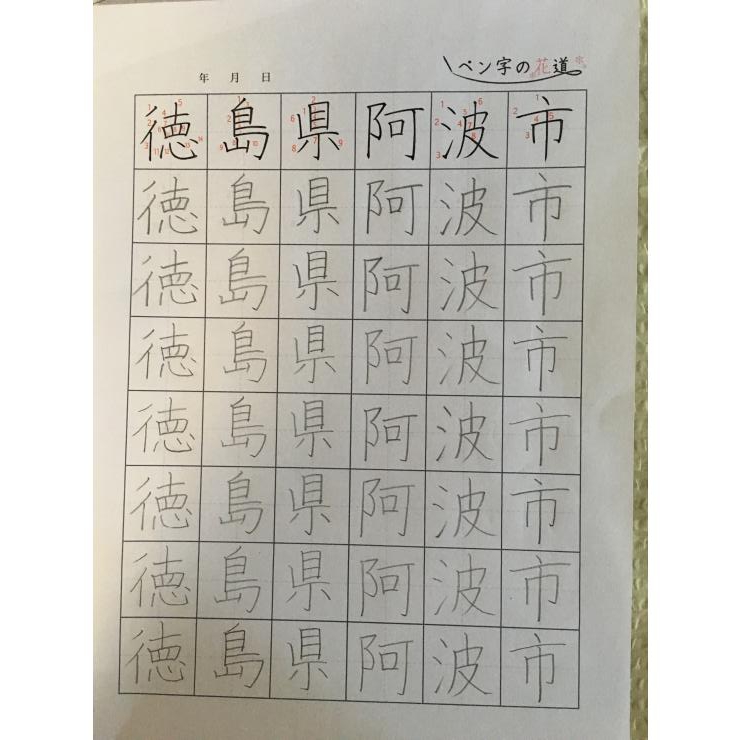 年 月 日
ペン字の花道
徳島県阿波市
徳島県阿波市
徳島県阿波市
徳島県阿波市
徳島県阿波市
徳島県阿波市
徳島県阿波市
徳島県阿波市